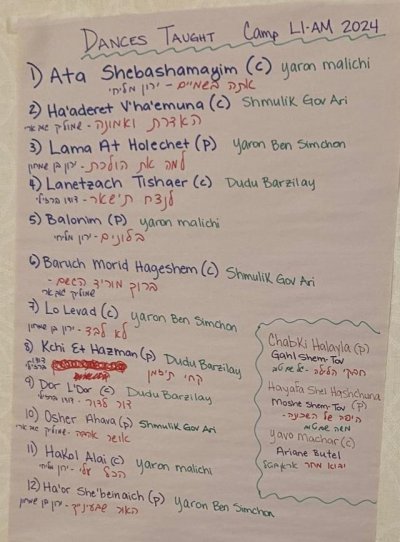 DANCES TAUGHT CAMP LI-AM 2024
1) Ata Shebashamayim (c) yaron malichi
אתה בשמיים - ירון מליחי
2) Ha'aderet V'ha'emuna (c) Shmulik Gov Ari
האדרת ואמונה - שמוליק גוב ארי
3) Lama At Holechet (p) Yaron Ben Simchon
למה את הולכת - ירון בן שמחון
4) Lanetzach Tishaer (c) Dudu Barzilay
לנצח תישאר - דודו ברזילי
5) Balonim (p) yaron malichi
בלונים - ירון מליחי
6) Baruch Morid Hageshem (c) Shmulik Gov Ari
ברוך מוריד הגשם -
שמוליק גוב ארי
7) Lo Levad (c) yaron Ben Simchon
לא לבד - ירון בן שמחון
8) Kchi Et Hazman (p) Dudu Barzilay
קחי ת'זמן
דודו ברזילי
9) Dor L'Dor (c) Dudu Barzilay
דור לדור - דודו ברזילי
10) Osher Ahava (p) Shmulik Gov Ari
אושר אהבה - שמוליק גוב ארי
11) Hakol Alai (c) yaron malichi
הכל עלי - ירון מליחי
12) Ha'or She'beinaich (p) yaron Ben Simchon
האור שבעינייך - ירון בן שמחון
Chabki Halayla (p)
Gahl Shem-Tov
חבקי הלילה -
Hayafa Shel Hashchuna
Moshe Shem-Tov (p)
היפה של השכונה -
משה שם טוב
Yavo Machar (c)
Ariane Butel
יבוא מחר